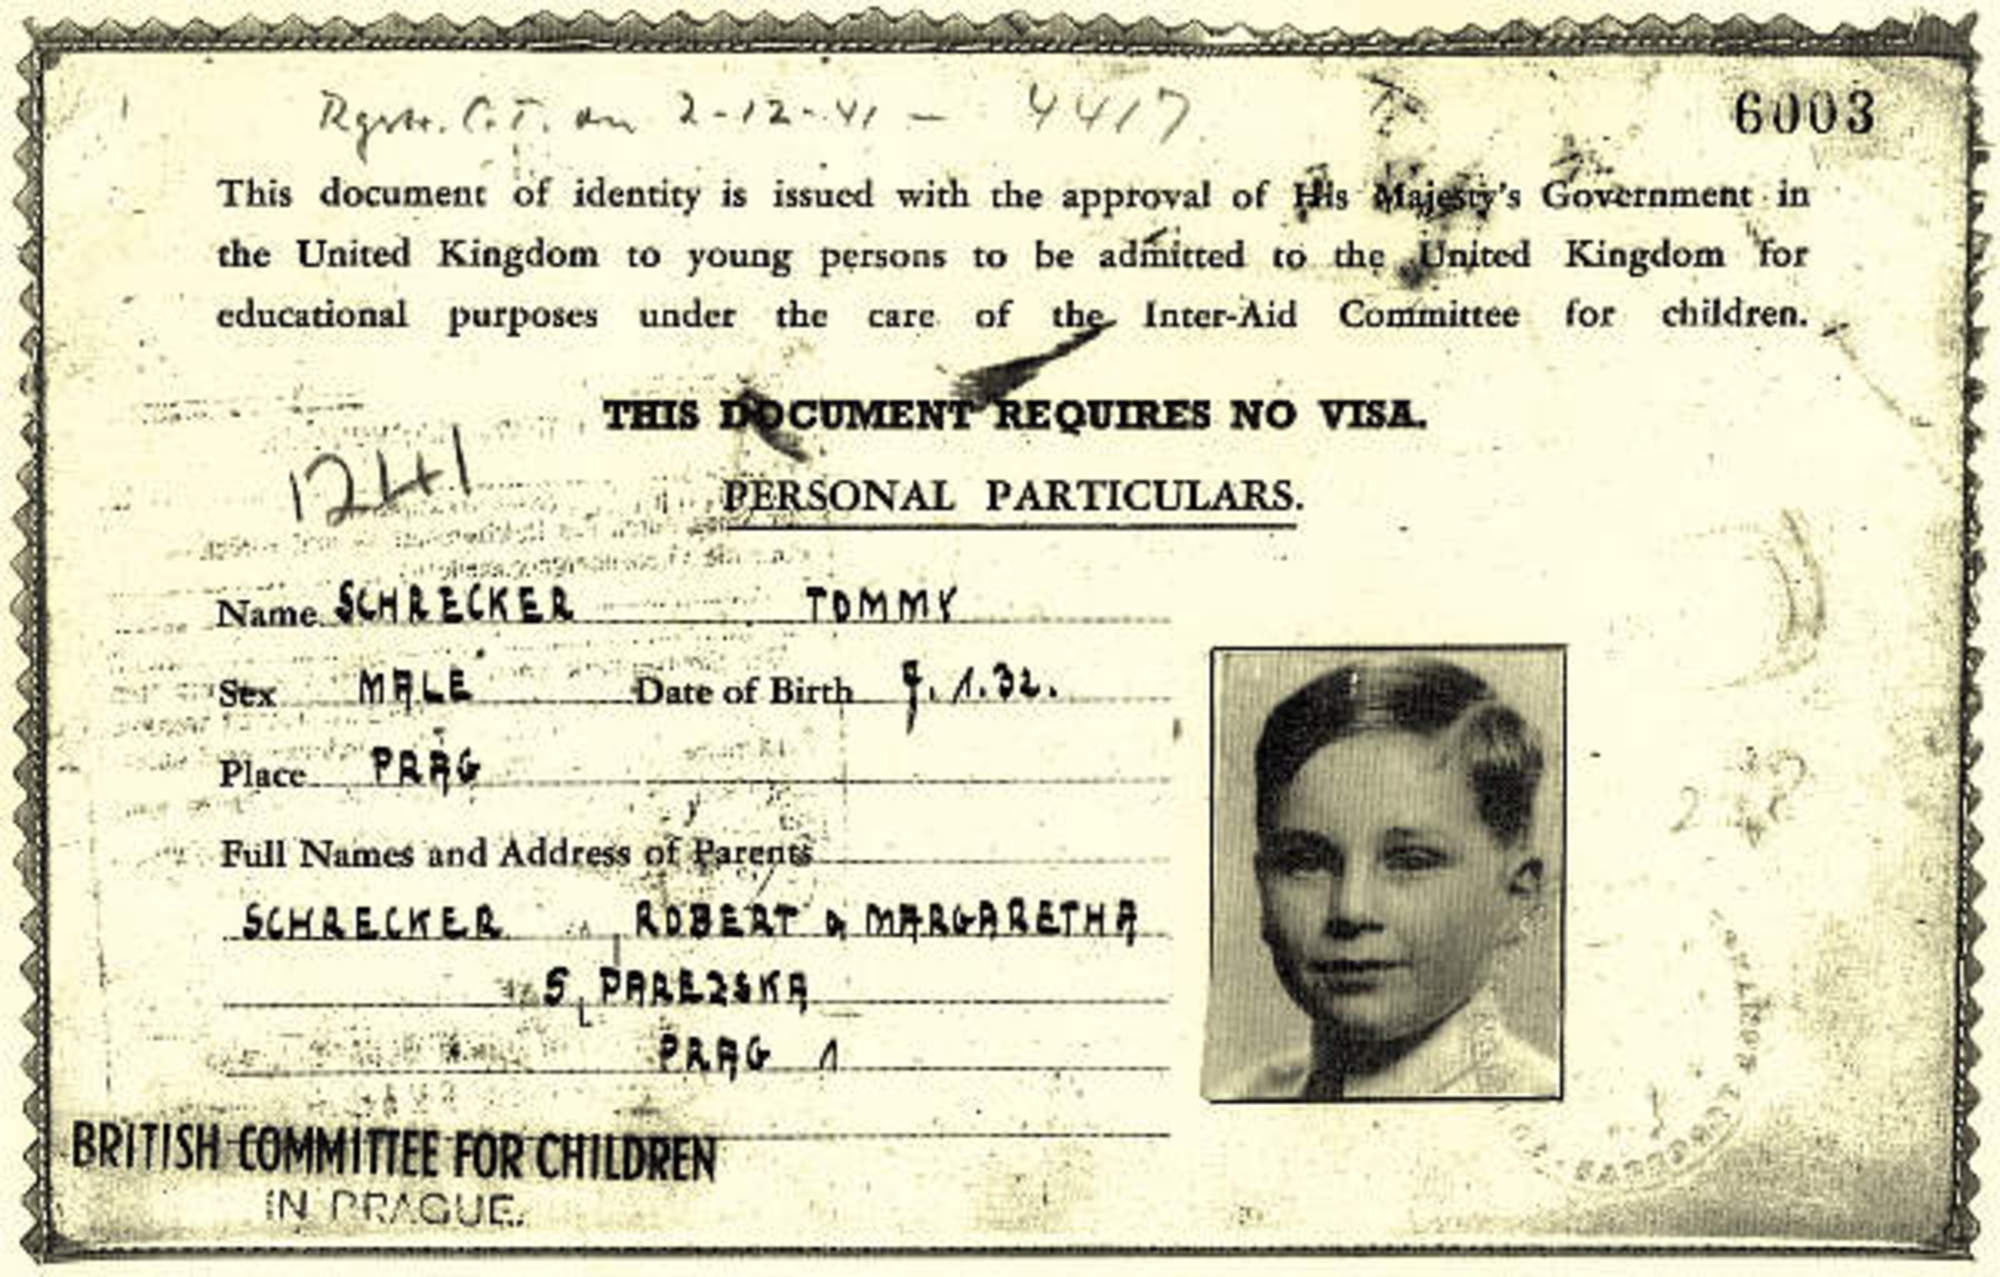 Rgstr. C.T. on 2-12-41 — 4417
6003
This document of identity is issued with the approval of His Majesty's Government in
the United Kingdom to young persons to be admitted to the United Kingdom for
educational purposes under the care of the Inter-Aid Committee for children.
THIS DOCUMENT REQUIRES NO VISA.
1241
PERSONAL PARTICULARS.
Name SCHRECKER TOMMY
Sex MALE Date of Birth 7.1.32.
Place PRAG
Full Names and Address of Parents
SCHRECKER ROBERT & MARGARETHA
5, PAREZSKA
PRAG 1
BRITISH COMMITTEE FOR CHILDREN
IN PRAGUE.